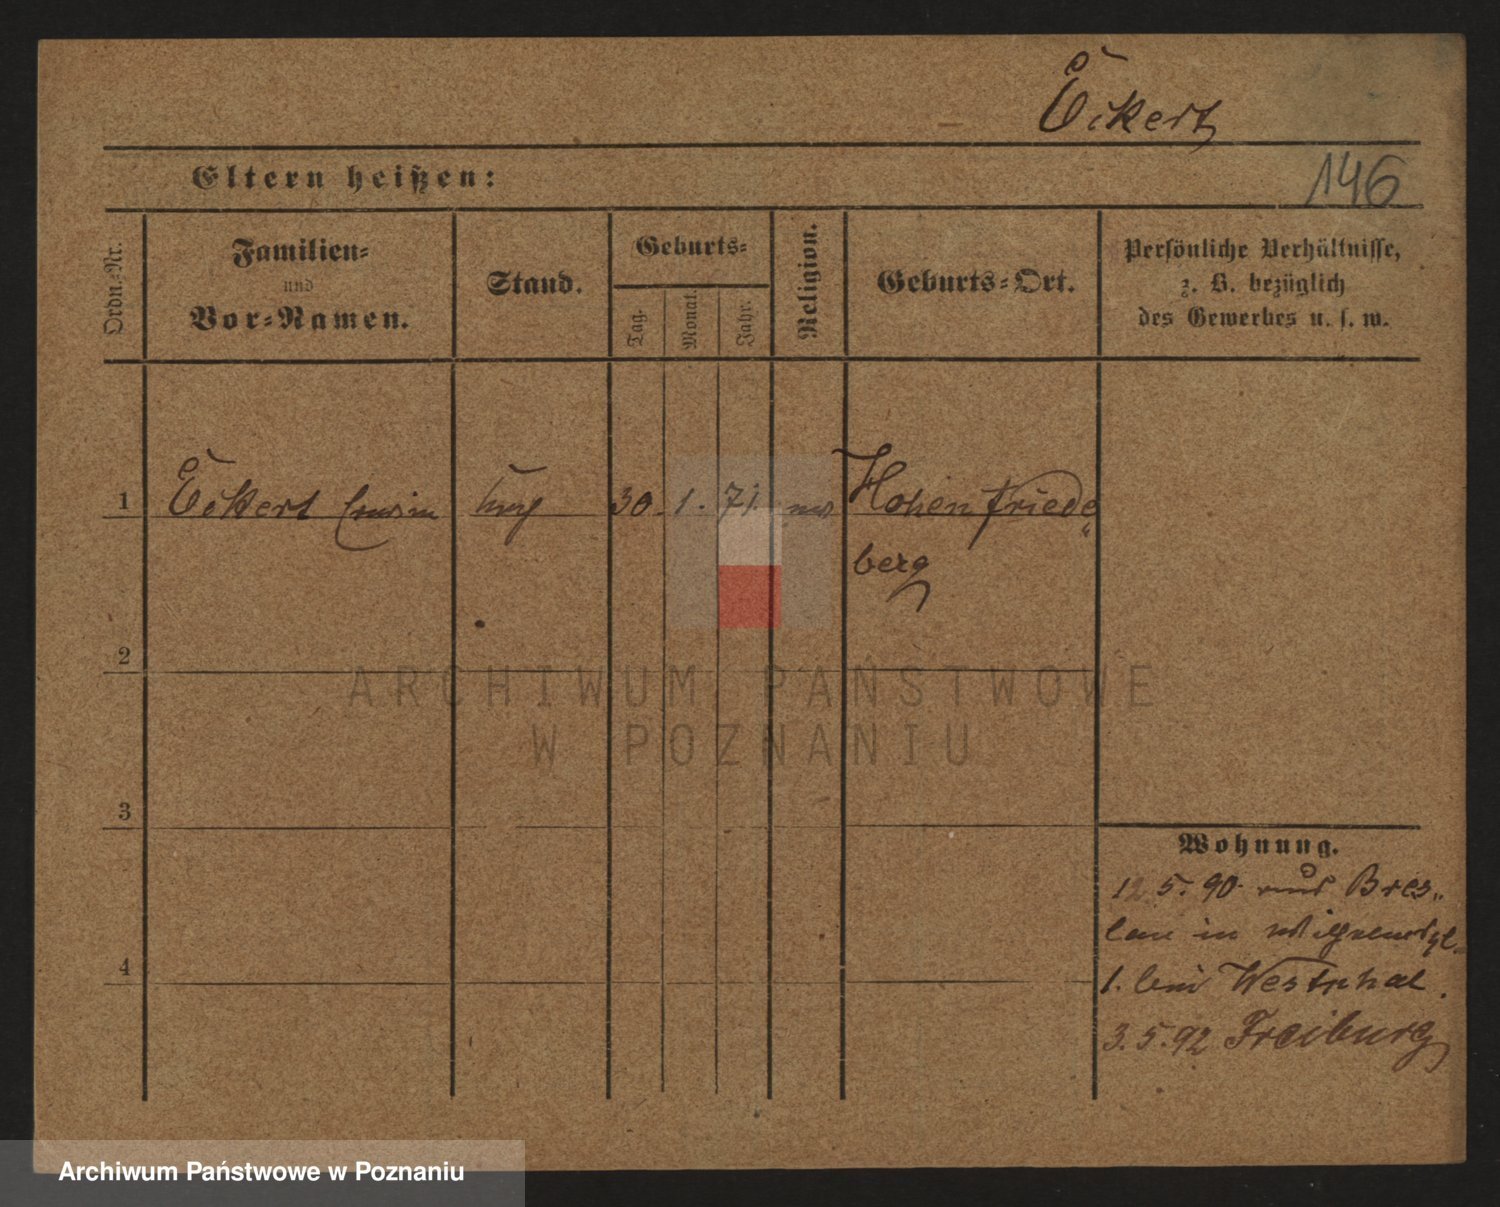 Eckert
146
Eltern heißen:
Ordn.-Nr.
Familien-
und
Vor-Namen.
Stand.
Geburts-
Tag.
Monat.
Jahr.
Religion.
Geburts-Ort.
Persönliche Verhältnisse,
z. B. bezüglich
des Gewerbes u. s. w.
1 Eckert 30. 1. 71. Hohenfriede
berg
2
ARCHIWUM PAŃSTWOWE
W POZNANIU
3
Wohnung.
12. 5. 90. aus Bres-
lau in
4
1. bei Westphal.
3. 5. 92 Freiburg
Archiwum Państwowe w Poznaniu